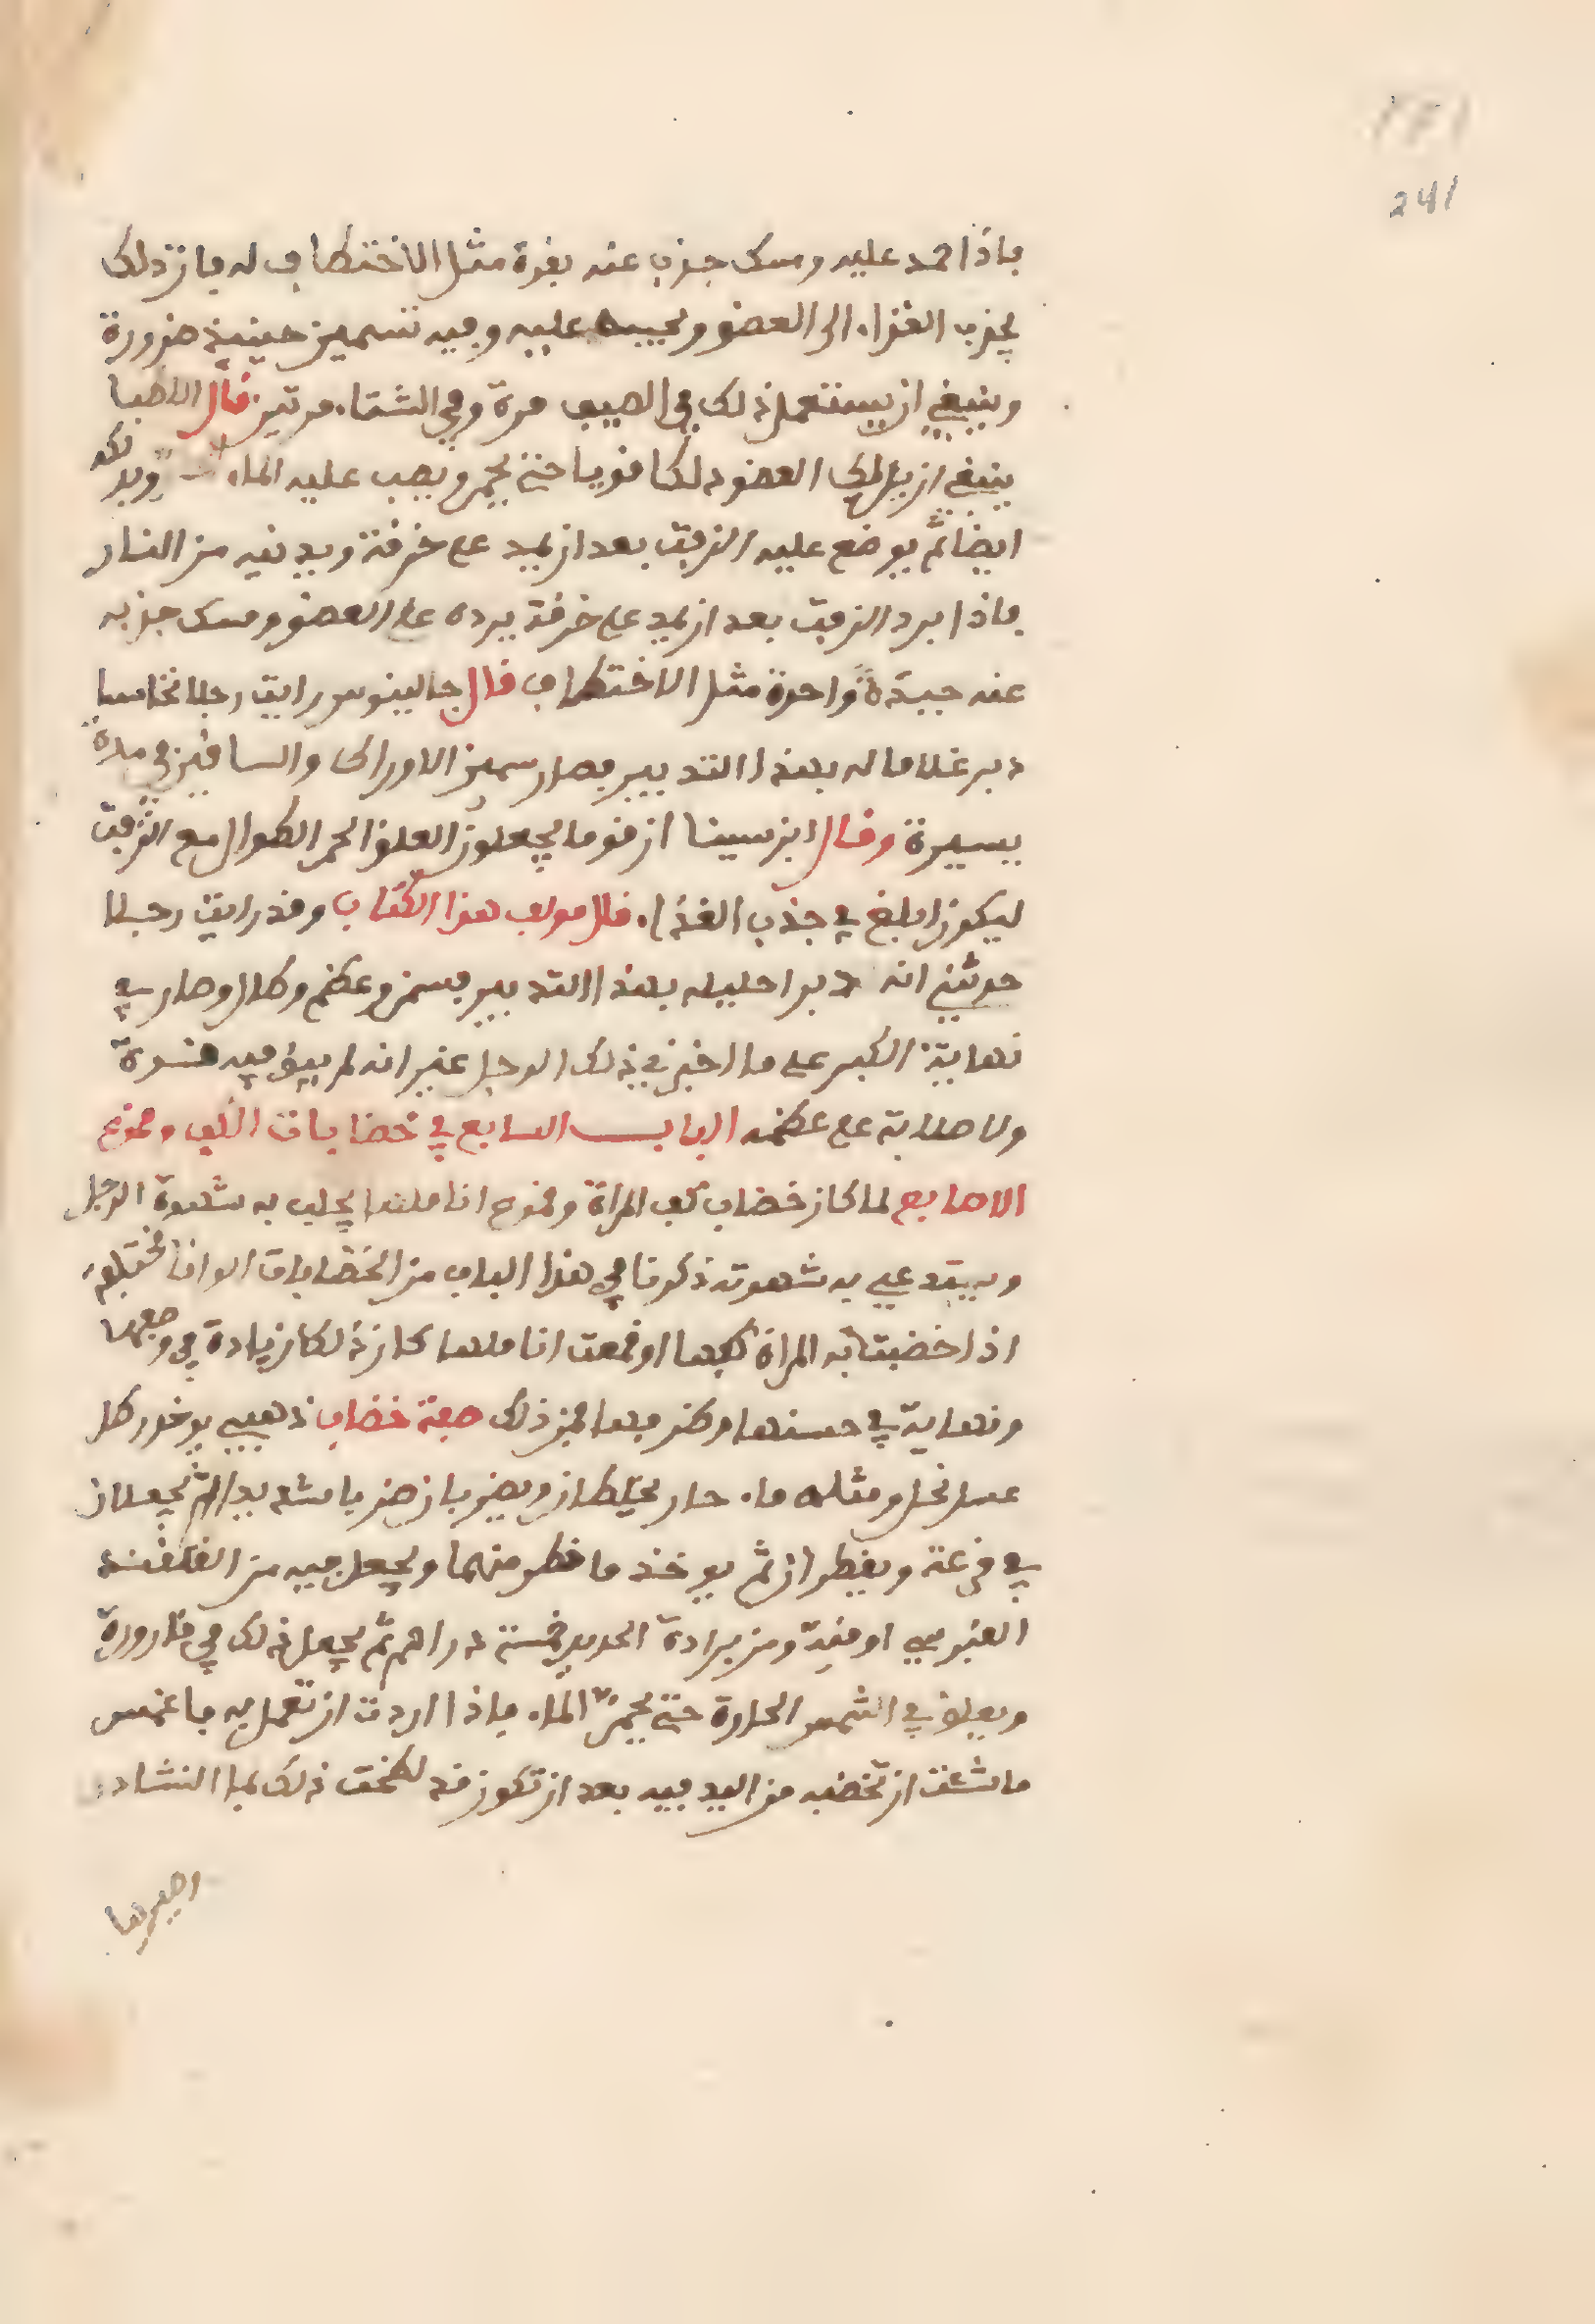 241
فاذا جمد عليه ومسك جذب عنه بقوة مثل الاختطاف له فان ذلك
يجذب الغذاء الى العضو ويحبسه عليه وفيه تسمين حينيذ ضرورة
وينبغي ان يستعمل ذلك في الصيف مرة وفي الشتاء مرتين قال الاطبا
ينبغي ان يدلك العضو دلكا قويا حتى يحمر ويصب عليه الماء ويدلك
ايضا ثم يوضع عليه الزفت بعد ان يمد على خرقة ويدنيه من النار
فاذا برد الزفت بعد ان يمد على خرقة يرده على العضو ومسك جذبه
عنه جبدة واحدة مثل الاختطاف قال جالينوس رايت رجلا نخاسيا
دبر غلاما له بهذا التدبير فصار سمين الاوراك والساقين في مدة
يسيرة وقال ابن سينا ان قوما يجعلون العلق الحمر الطوال مع الزفت
ليكون ابلغ في جذب الغذاء قال مولف هذا الكتاب وقد رايت رجلا
حدثني انه دبر احليله بهذا التدبير فسمن وعظم وطال وصار في
نهاية الكبر على ما اخبرني ذلك الرجل غير انه لم يبق فيه شدة
ولا صلابة على عظمه الباب السابع في خضابات الكف وقموع
الاصابع لما كان خضاب كف المراة وقموع اناملها يجلب به شهوة الرجل
ويستدعي به شهوته ذكرنا في هذا الباب من الخضابات الوانا مختلفة
اذا خضبت به المراة كفها او قمعت اناملها كان ذلك زيادة في وصفها
ونهاية في حسنها وظرفها فمن ذلك صفة خضاب ذهبي يوخذ رطل
عسل نحل ومثله ماء حار يخلطان ويضربان ضربا شديدا ثم يجعلان
في قرعة ويقطران ثم يوخذ ما قطر منهما ويجعل فيه من القلقند
القبرسي اوقية ومن برادة الحديد خمسة دراهم ثم يجعل ذلك في قارورة
ويعلق في الشمس الحارة حتى يحمر الماء فاذا اردت ان تعمل به فاغمس
ما شئت ان تخضبه من اليد فيه بعد ان تكون قد لطخت ذلك بماء النشادر